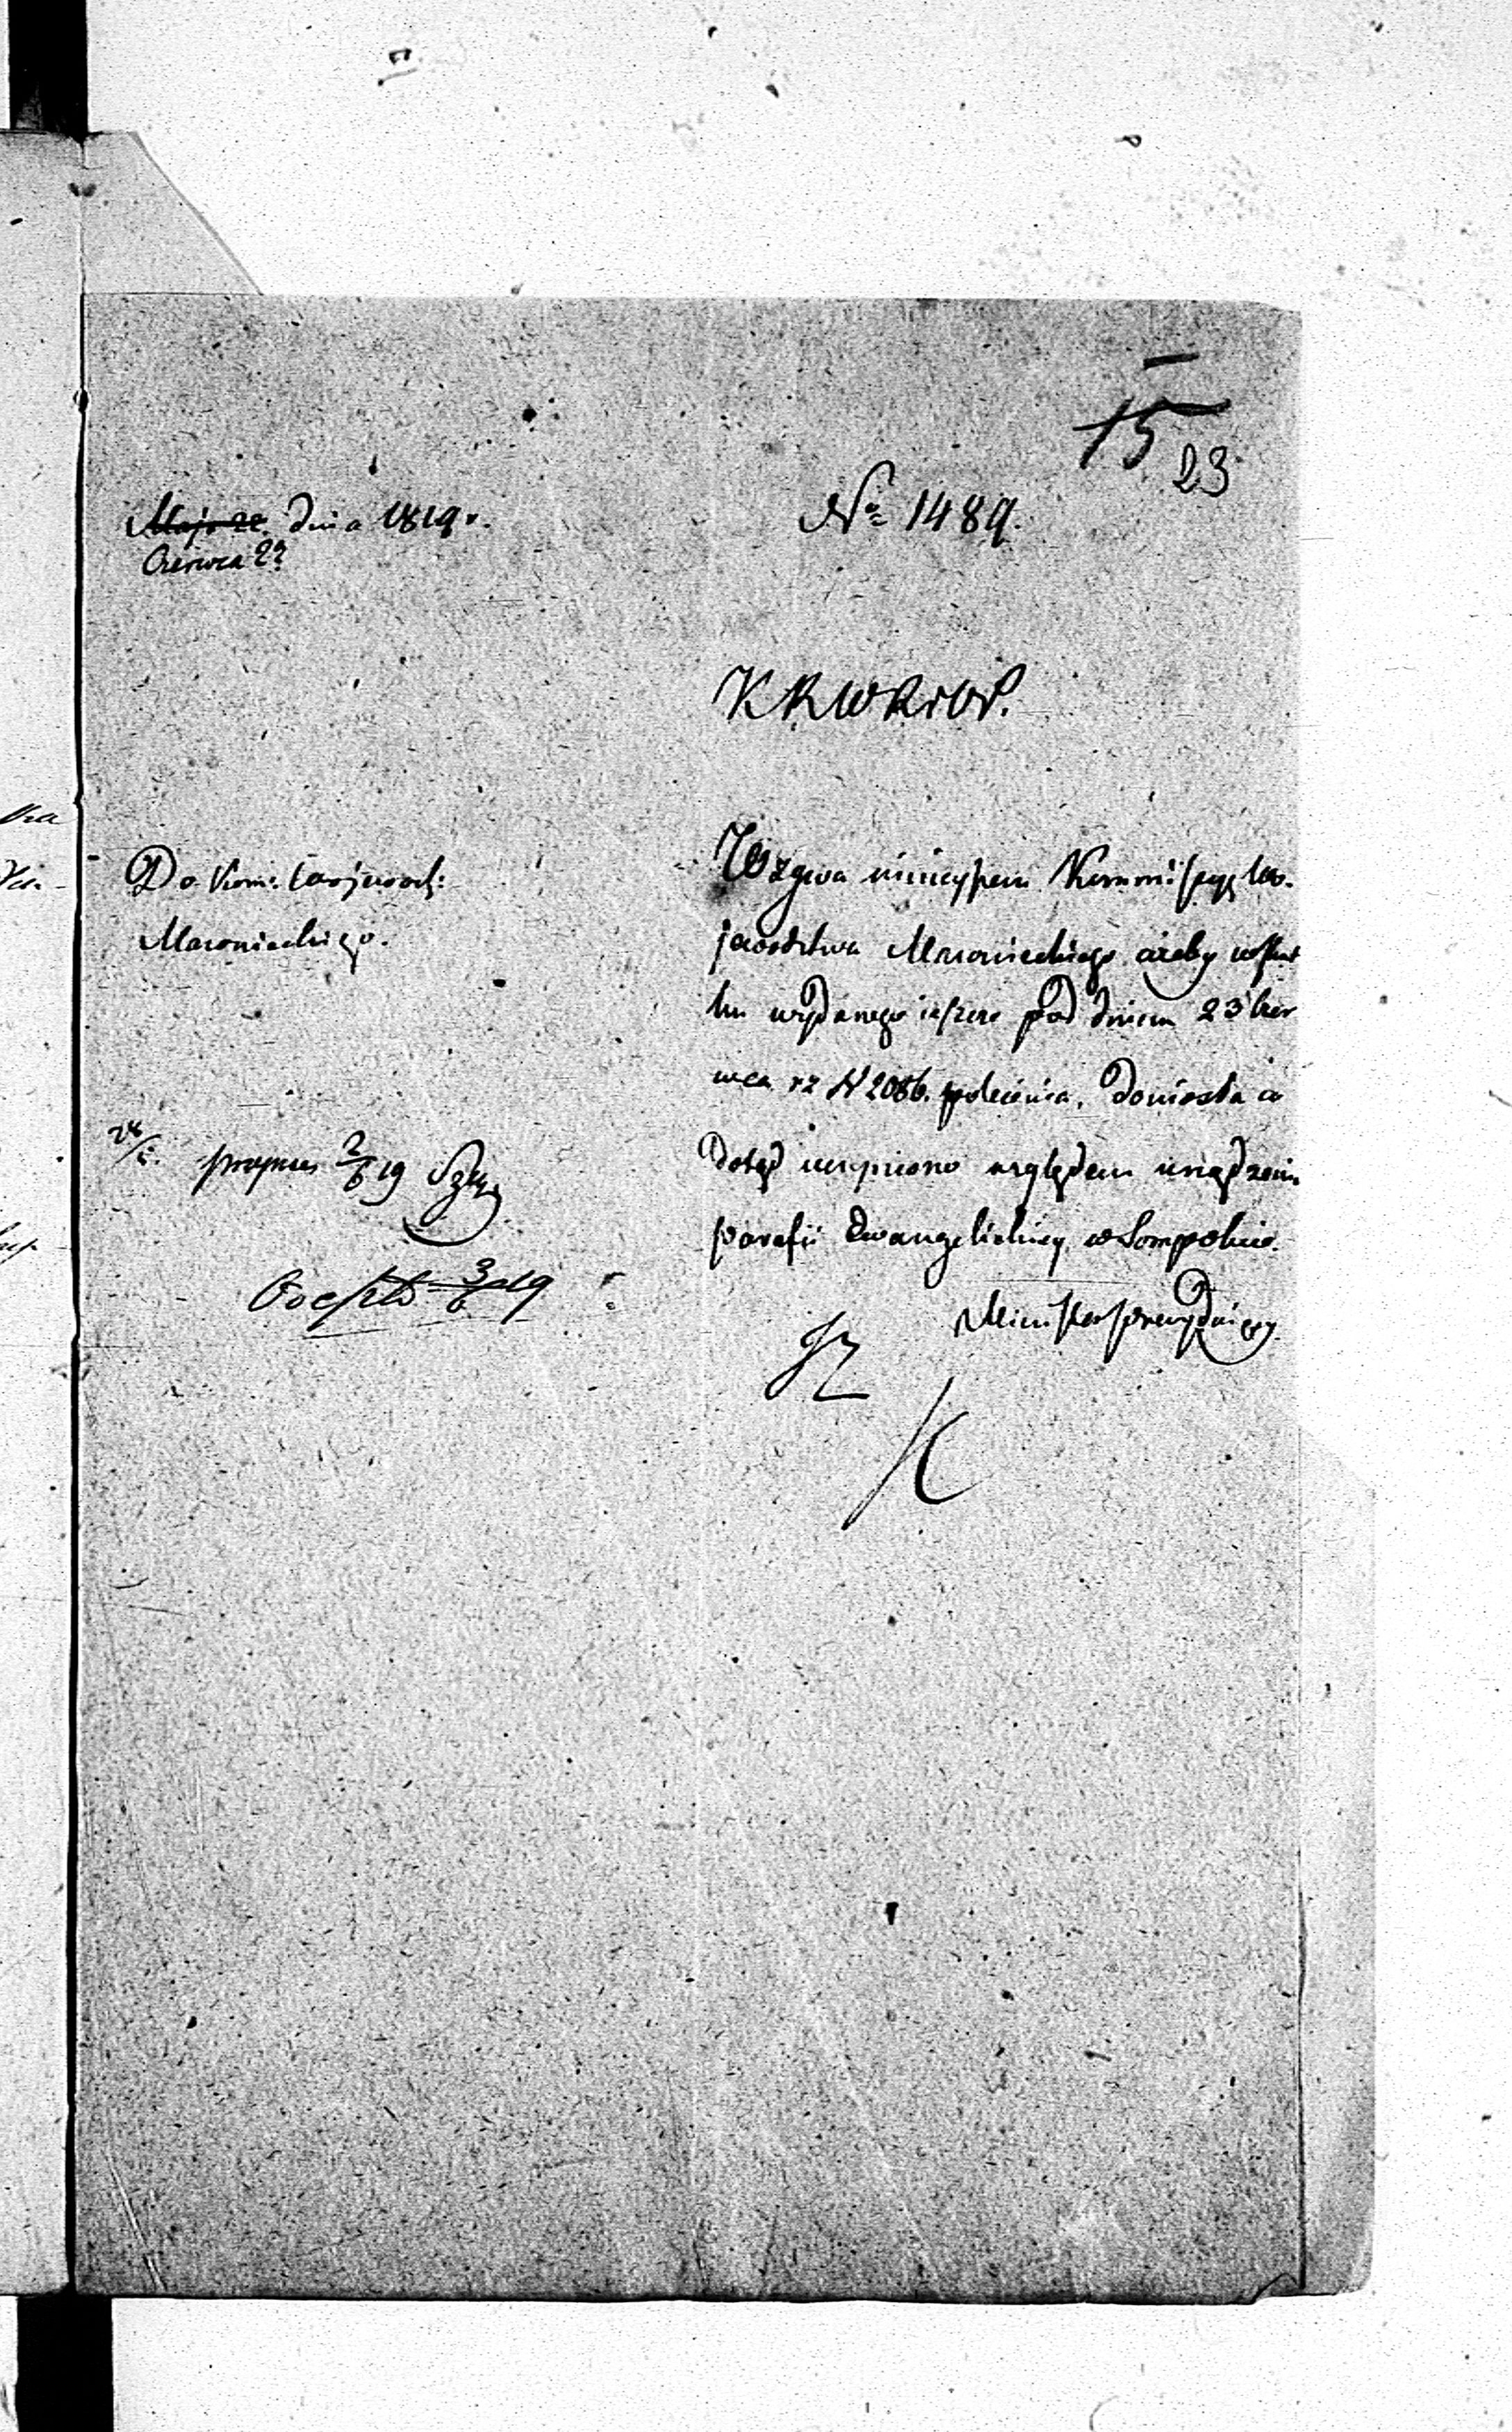 15
23
Maja 22 dnia 1819 r.
Czerwca 2?
No 1489.
K R W R i O P.
Do Kom: Wojewodz:
Mazowieckiego.
Wzywa niniejszem Kommissyą Wo-
jewództwa Mazowieckiego ażeby w skut
ku wydanego jeszcze pod dniem 23 Czer
wca rz N 2086. polecenia, doniosła co
dotąd uczyniono względem urządzenia
parafii Ewangelickiey w Sompolnie.
Minister prezydujący
przepis 2/6 19
3/6 19